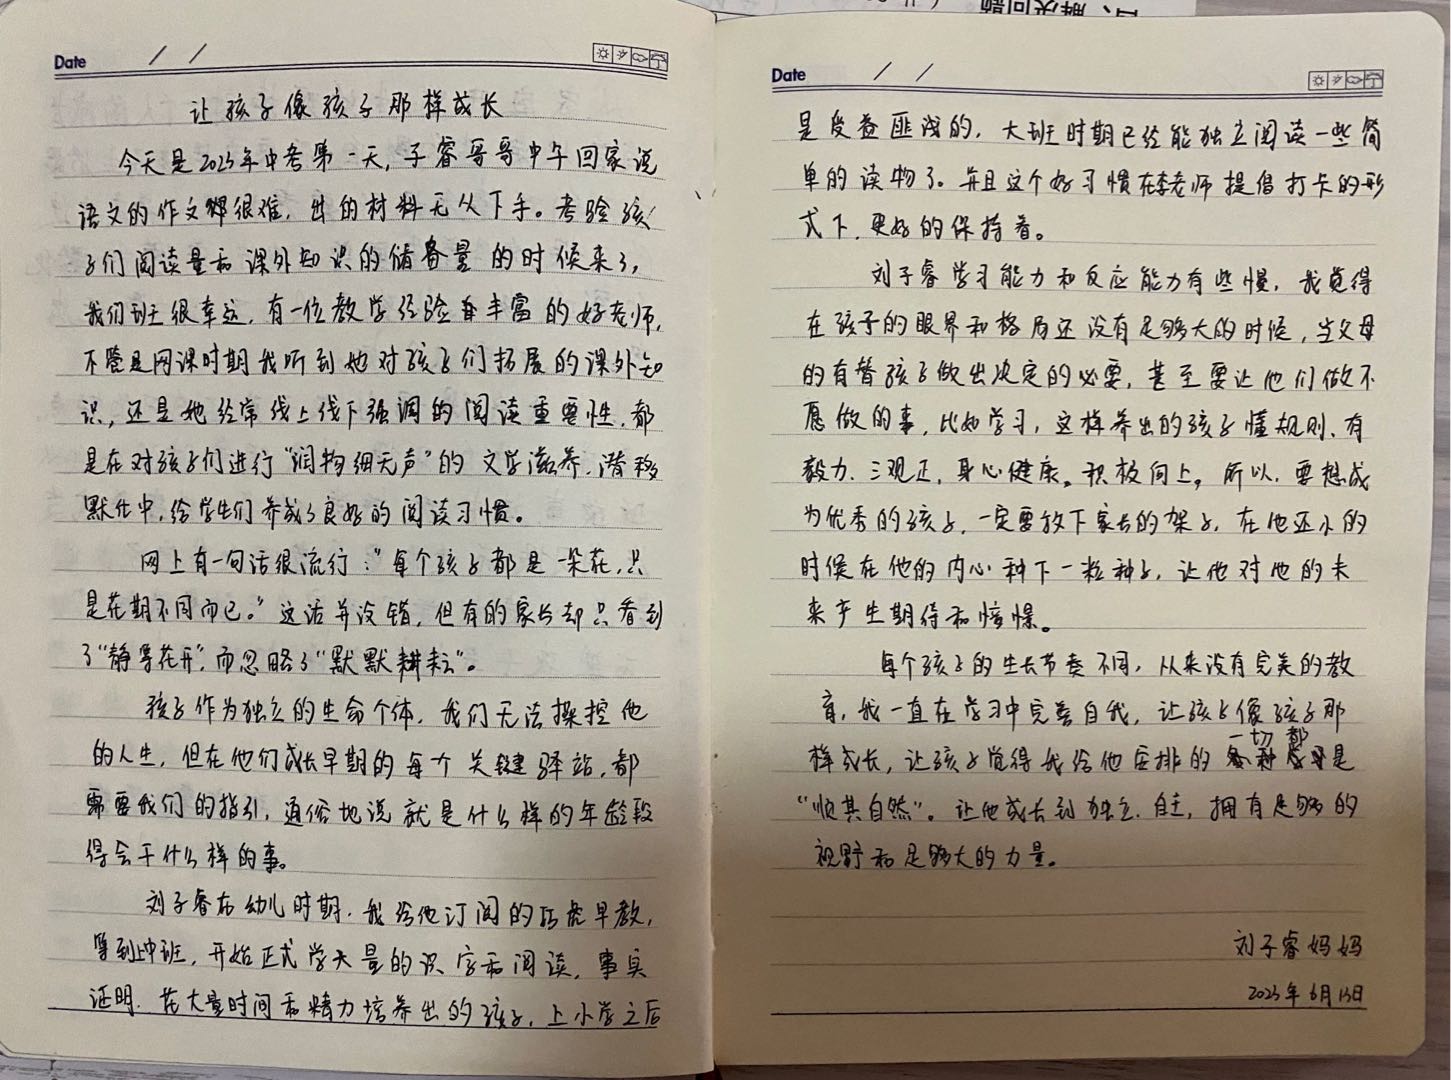 四、解决问题
Date / /
让孩子像孩子那样成长
今天是2023年中考第一天,子睿哥哥中午回家说
语文的作文很难,出的材料无从下手。考验孩
子们阅读量和课外知识的储备量的时候来了,
我们班很幸运,有一位教学经验丰富的好老师,
不管是网课时期我听到她对孩子们拓展的课外知
识,还是她经常线上线下强调的阅读重要性,都
是在对孩子们进行“润物细无声”的文学滋养,潜移
默化中,给学生们养成了良好的阅读习惯。
网上有一句话很流行:“每个孩子都是一朵花,只
是花期不同而已。”这话并没错,但有的家长却只看到
了“静等花开”,而忽略了“默默耕耘”。
孩子作为独立的生命个体,我们无法操控他
的人生,但在他们成长早期的每个关键驿站,都
需要我们的指引,通俗地说就是什么样的年龄段
得会干什么样的事。
刘子睿在幼儿时期,我给他订阅的巧虎早教,
等到上中班,开始正式学大量的识字和阅读,事实
证明,花大量时间和精力培养出的孩子,上小学之后
Date / /
是受益匪浅的,大班时期已经能独立阅读一些简
单的读物了。并且这个好习惯在李老师提倡打卡的形
式下,更好的保持着。
刘子睿学习能力和反应能力有些慢,我觉得
在孩子的眼界和格局还没有足够大的时候,当父母
的有替孩子做出决定的必要,甚至要让他们做不
愿做的事,比如学习,这样养出的孩子懂规则、有
毅力、三观正,身心健康。积极向上。所以,要想成
为优秀的孩子,一定要放下家长的架子,在他还小的
时候在他的内心种下一粒种子,让他对他的未
来产生期待和憧憬。
每个孩子的生长节奏不同,从来没有完美的教
育,我一直在学习中完善自我,让孩子像孩子那
样成长,让孩子觉得我给他安排的一切都是
“顺其自然”。让他成长到独立、自主,拥有足够的
视野和足够大的力量。
刘子睿妈妈
2023年6月13日